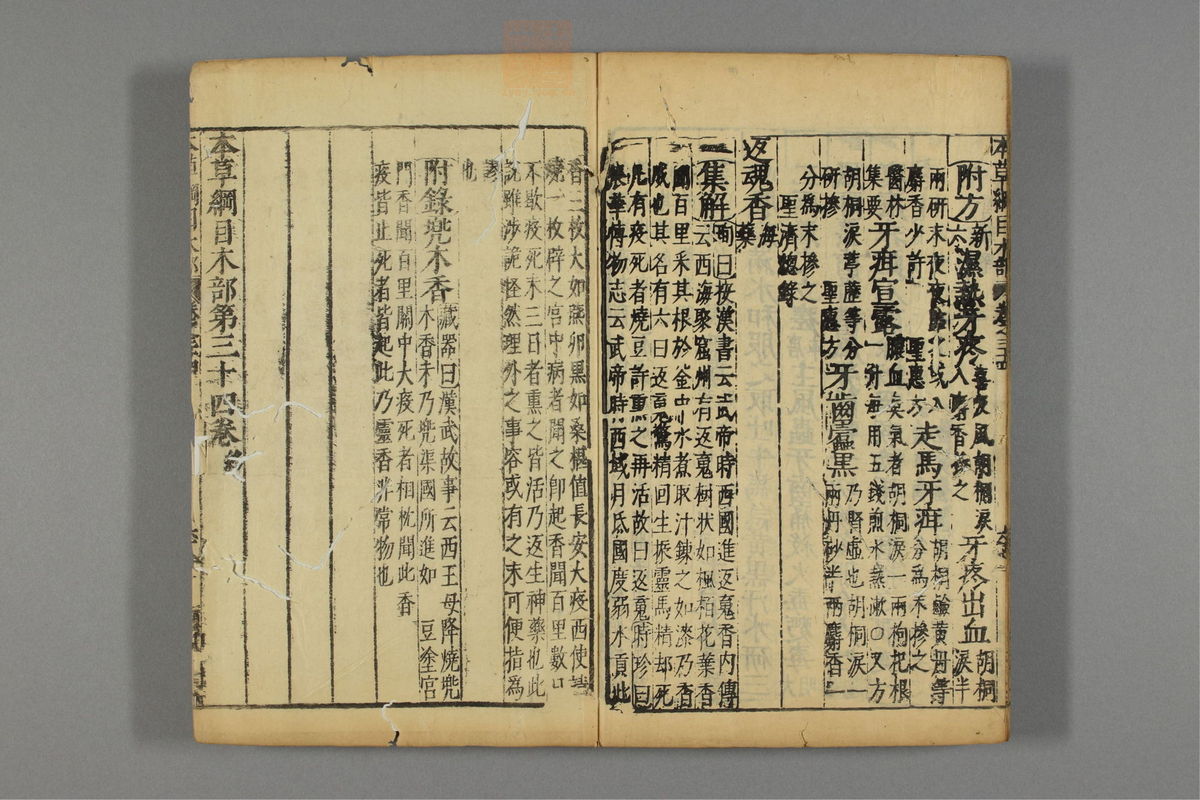 附方新六濕熱牙疼喜吸風胡桐淚入麝香摻之牙疼出血胡桐淚半
兩研末夜夜貼之或入麝香少許聖惠方走馬牙疳胡桐鹼黃丹等分為末摻之
醫林集要牙疳宣露膿血臭氣者胡桐淚一兩枸杞根一升每用五錢煎水熱漱〇又方
胡桐淚葶藶等分研摻聖惠方牙齒蠹黑乃腎虛也胡桐淚一兩丹砂半兩麝香一
分為末摻之聖濟總錄
返魂香海藥
集解珣曰按漢書云武帝時西國進返魂香内傳
云西海聚窟州有返魂樹狀如楓柏花葉香
聞百里采其根於釜中水煮取汁鍊之如漆乃香
成也其名有六曰返魂驚精回生振靈馬精却死
凡有疫死者燒豆許熏之再活故曰返魂時珍曰
張華博物志云武帝時西域月氐國度弱水貢此
香三枚大如燕卵黑如桑椹值長安大疫西使請
燒一枚辟之宮中病者聞之卽起香聞百里數日
不歇疫死未三日者熏之皆活乃返生神藥也此
說雖涉詭怪然理外之事容或有之未可便指為
謬也
附錄兜木香藏器曰漢武故事云西王母降燒兜木香末乃兜渠國所進如豆塗宮
門香聞百里關中大疫死者相枕聞此香
疫皆止死者皆起此乃靈香非常物也
本草綱目木部第三十四卷終